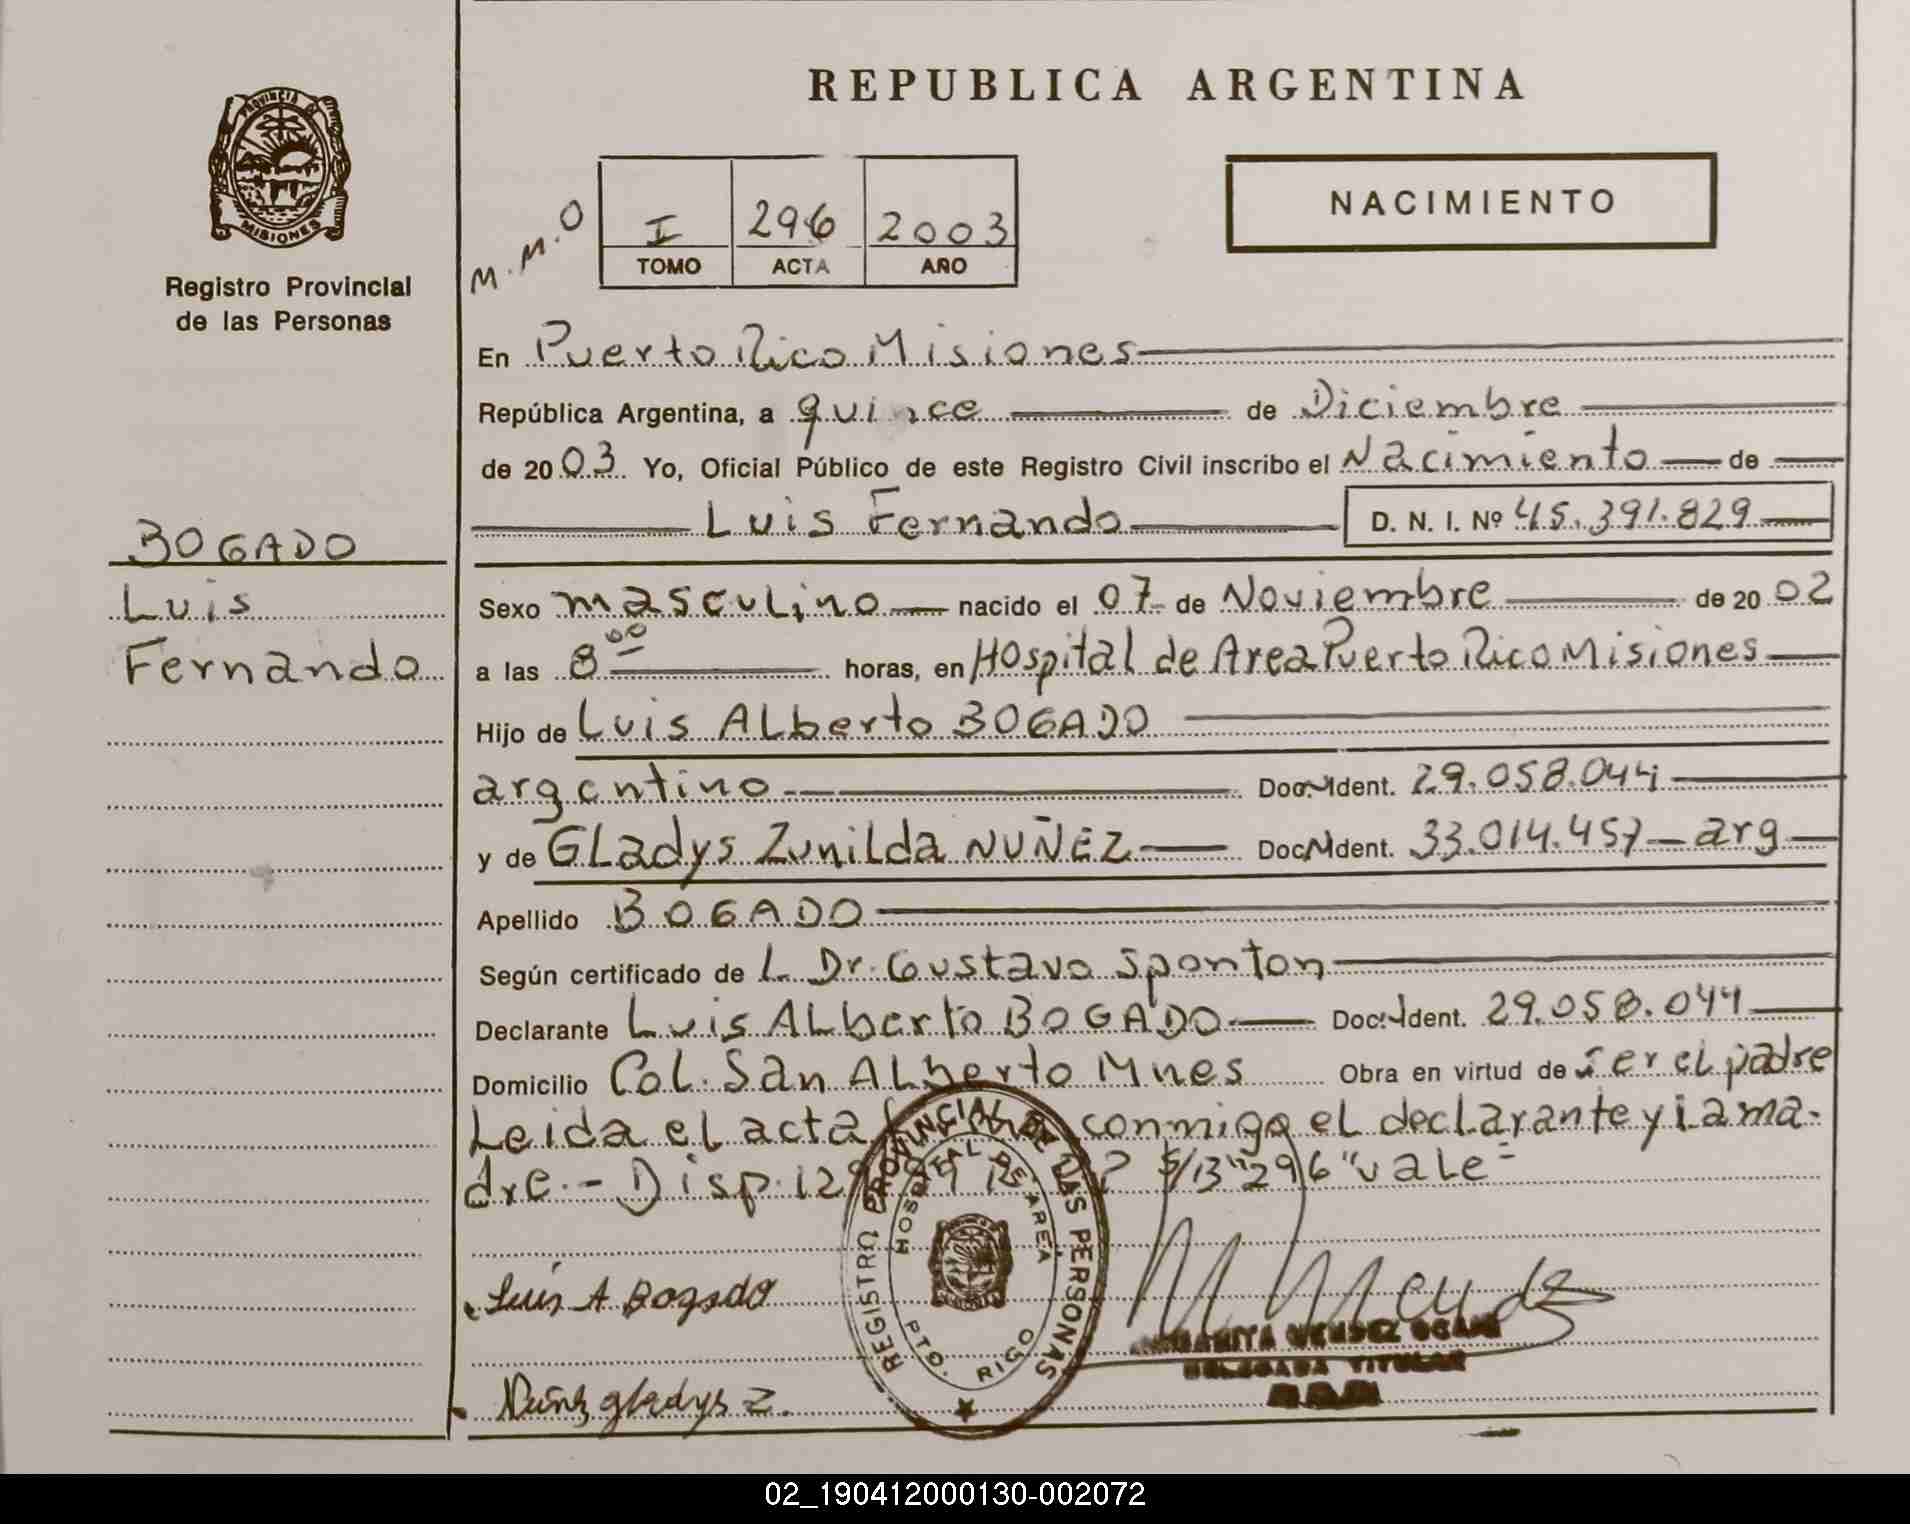 REPUBLICA ARGENTINA
PROVINCIA DE
MISIONES
Registro Provincial
de las Personas
M.M.O
I 296 2003
TOMO ACTA AÑO
NACIMIENTO
En Puerto Rico Misiones
República Argentina, a quince de Diciembre
de 2003 Yo, Oficial Público de este Registro Civil inscribo el Nacimiento de
Luis Fernando D. N. I. Nº 45.391.829
BOGADO
Luis
Fernando
Sexo masculino nacido el 07 de Noviembre de 2002
a las 8 00 horas, en Hospital de Area Puerto Rico Misiones
Hijo de Luis ALberto BOGADO
argentino Doc. Ident. 29.058.044
y de GLadys Zunilda NUÑEZ Doc. Ident. 33.014.457 - arg
Apellido BOGADO
Según certificado de L Dr. Gustavo Sponton
Declarante Luis ALberto BOGADO Doc. Ident. 29.058.044
Domicilio Col. San ALberto Mnes Obra en virtud de ser el padre
Leida el acta conmigo el declarante y La ma-
dre.- Disp. 12 S/B "296" vale-
Luis A Bogado
Nuñez gladys z.
REGISTRO PROVINCIAL DE LAS PERSONAS
HOSPITAL DE AREA
PTO. RICO
M Mendez
MENDEZ
DELEGADA TITULAR
02_190412000130-002072